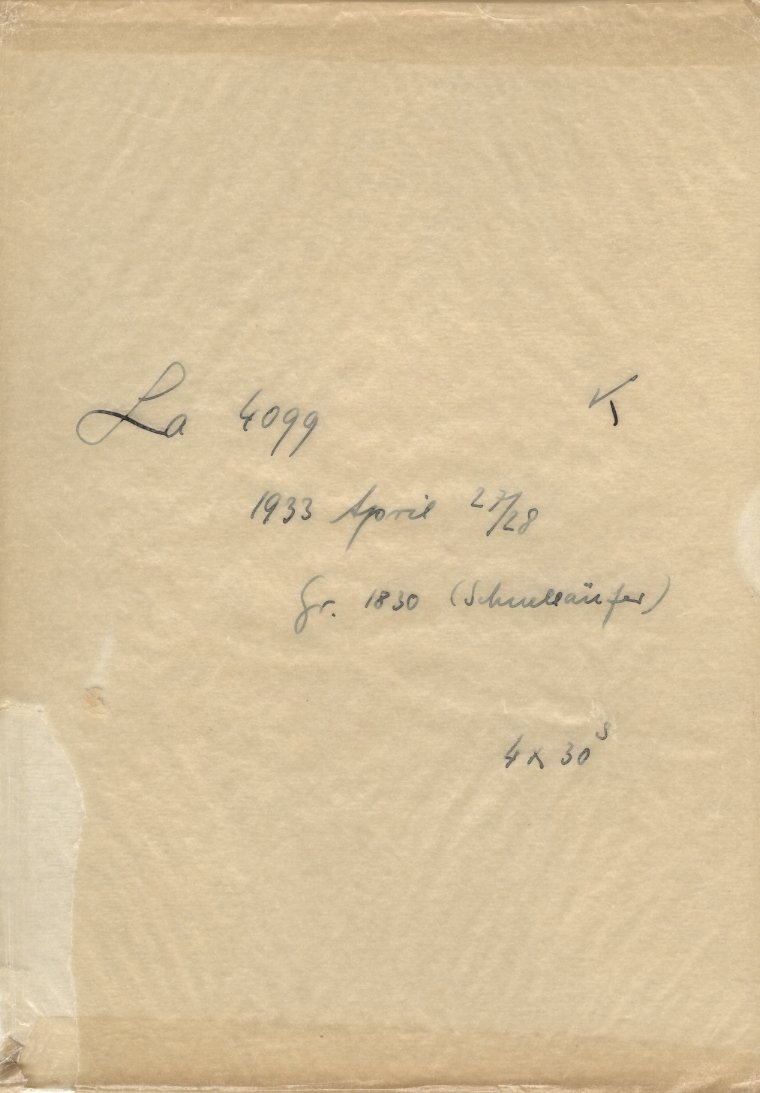 La 4099 K
1933 April 27/28
Gr. 1830 (Schnelläufer)
4 x 30ˢ